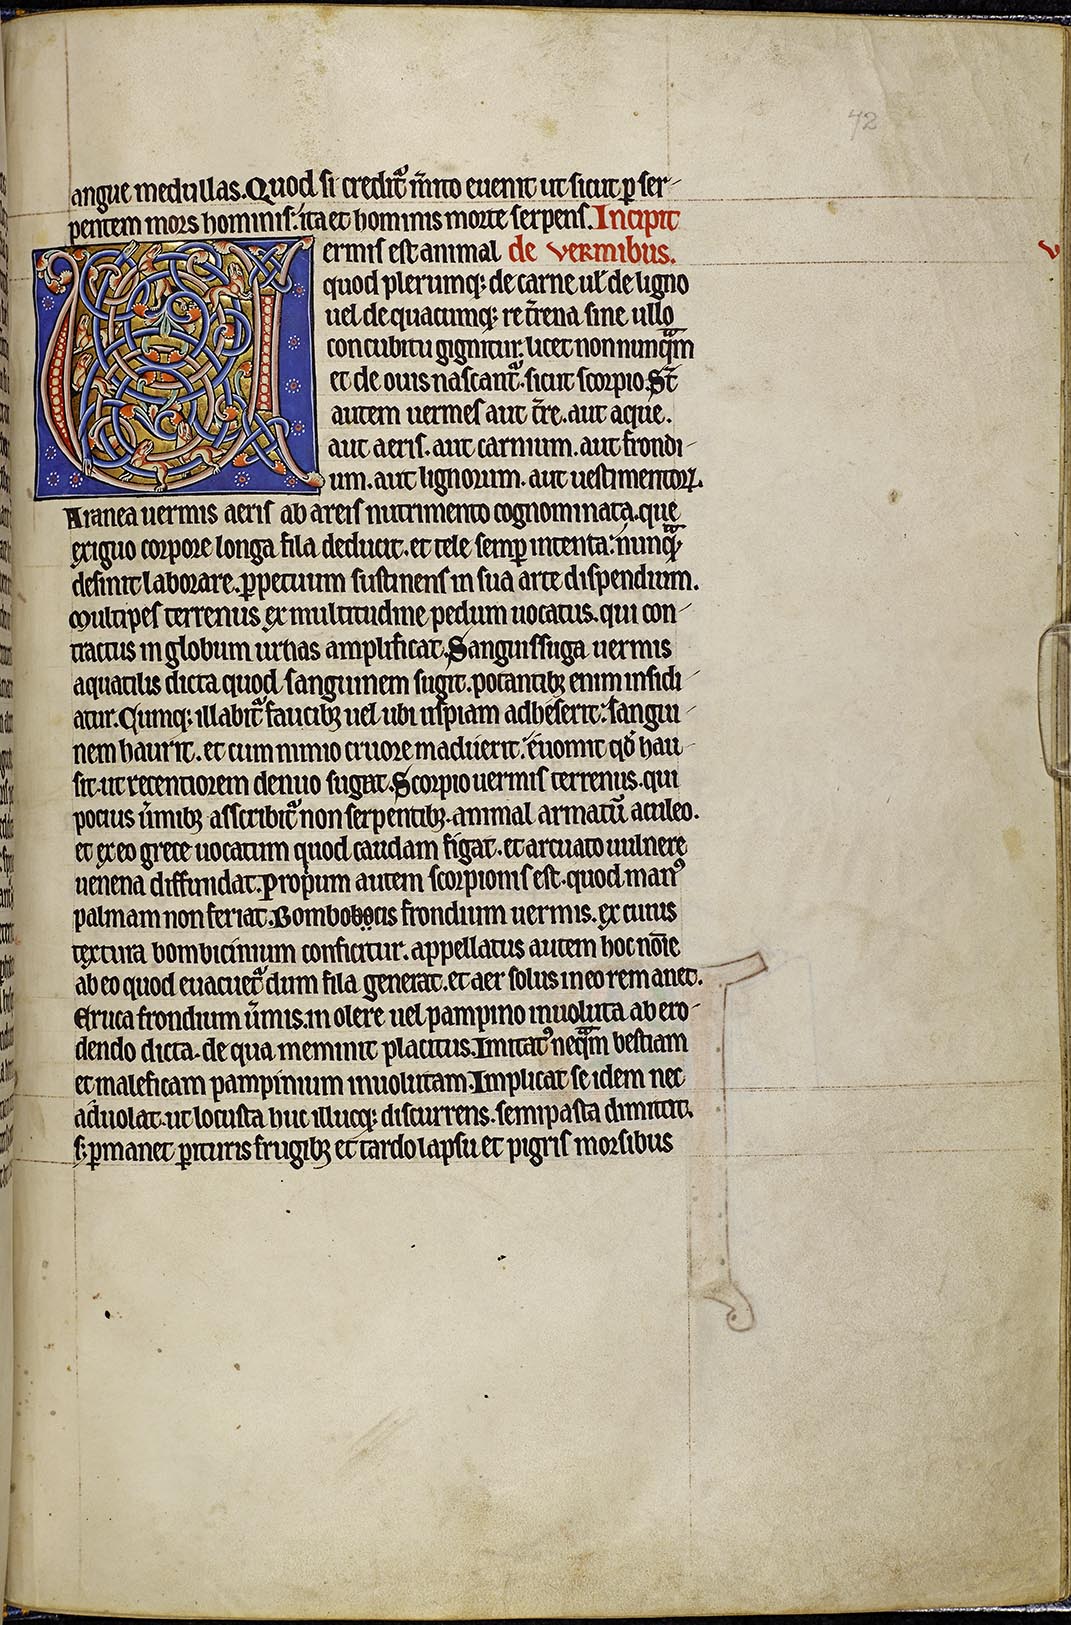 72
angue medullas. Quod si credit᷑ m̄ito euenit ut sicut ꝑ ser-
pentem mors hominis. ita et hominis morte serpens. Incipit
V
ermis est animal de vermibus.
quod plerumq; de carne ul̵ de ligno
uel de quacumq; re t̄rena sine ullo
concubitu gignitur. licet nonnunqᷓm
et de ouis nascant᷑. sicut scorpio. St̄
autem uermes aut t̄re. aut aque.
aut aeris. aut carnium. aut frondi-
um. aut lignorum. aut uestimentoꝝ.
Aranea uermis aeris ab aeris nutrimento cognominata. que
exiguo corpore longa fila deducit. et tele semꝑ intenta. nunqᷓ;
desinit laborare. ꝑpetuum sustinens in sua arte dispendium.
Multipes terrenus ex multitudine pedum uocatus. qui con-
tractus in globum
amplificat. Sanguissuga uermis
aquatilis dicta quod sanguinem sugit. potantibꝫ enim insidi-
atur. Cumq; illabit᷑ faucibꝫ uel ubi uspiam adheserit. sangui-
nem haurit. et cum nimio cruore maduerit. euomit qd̄ hau-
sit. ut recentiorem denuo sugat. Scorpio uermis terrenus. qui
pocius ūmibꝫ asscribit᷑ non serpentibꝫ. animal armatū aculeo.
et ex eo grece uocatum quod caudam figat. et arcuato uulnere
uenena diffundat. Proprium autem scorpionis est. quod manꝰ
palmam non feriat. Bombocis frondium uermis. ex cuius
textura bombicinium conficitur. appellatus autem hoc nōie
ab eo quod euacuet᷑ dum fila generat. et aer solus in eo remanet.
Eruca frondium ūmis. in olere uel pampino inuoluta ab ero-
dendo dicta. de qua meminit placitus. Imitatꝰ neqᷓm bestiam
et maleficam pampinium inuolutam. Implicat se idem nec
aduolat. ut locusta huc illucq; discurrens. semipasta dimittit.
s; ꝑmanet ꝑituris frugibꝫ et tardo lapsu et pigris morsibus